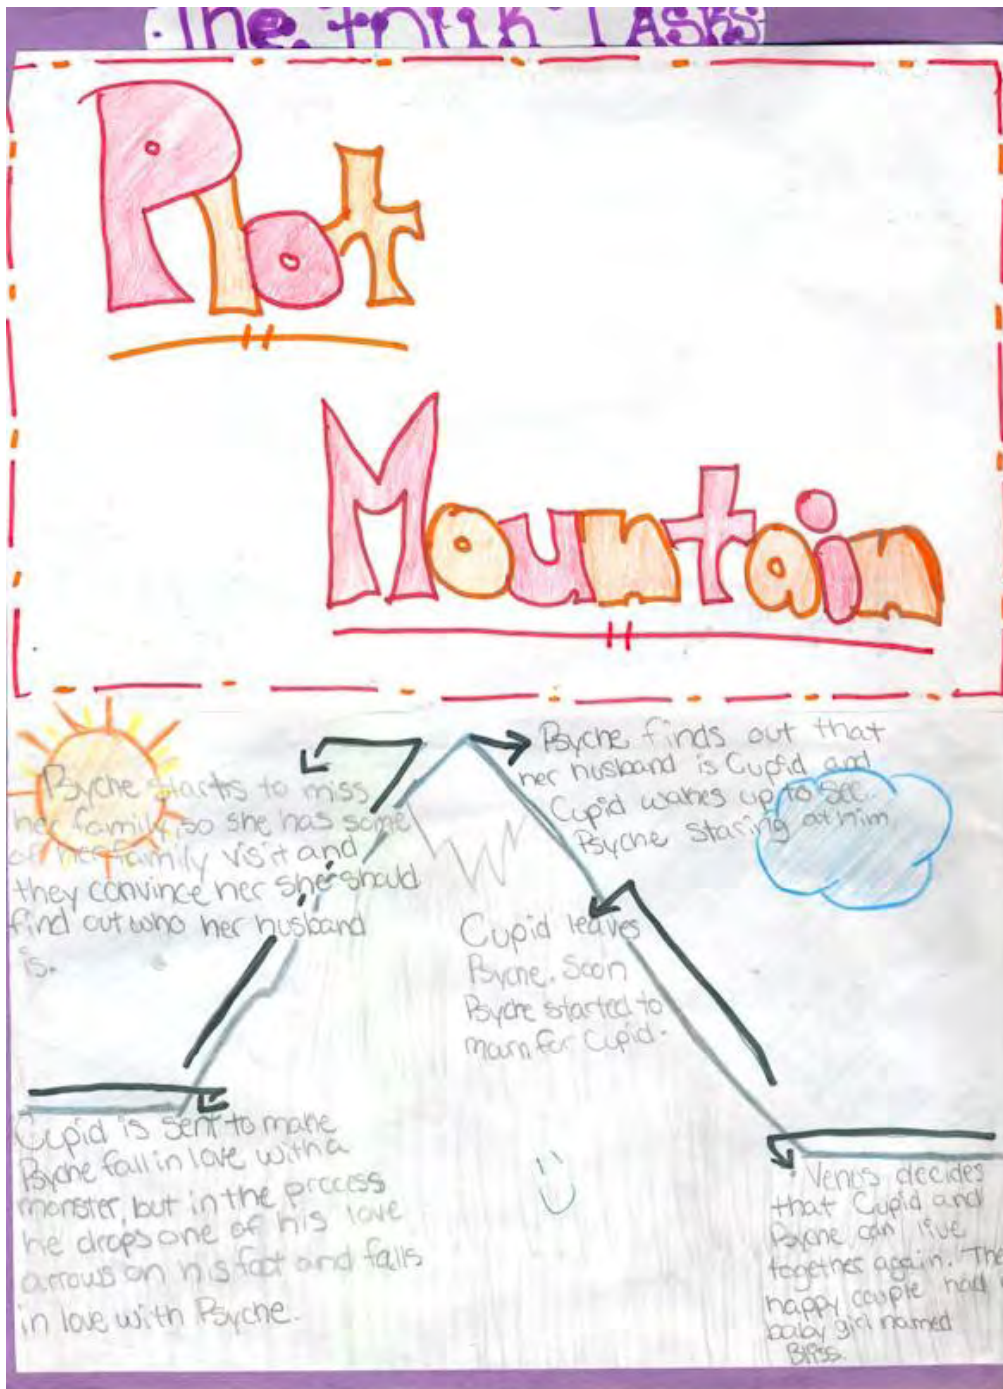 The Tasks
Plot
Mountain
Psyche starts to miss
her family, so she has some
of her family visit and
they convince her she should
find out who her husband
is.
Psyche finds out that
her husband is Cupid and
Cupid wakes up to see
Psyche staring at him
Cupid leaves
Psyche. Soon
Psyche started to
mourn for Cupid.
Cupid is sent to make
Psyche fall in love with a
monster, but in the process
he drops one of his love
arrows on his foot and falls
in love with Psyche.
Venus decides
that Cupid and
Psyche can live
together again. The
happy couple had
baby girl named
Bliss.